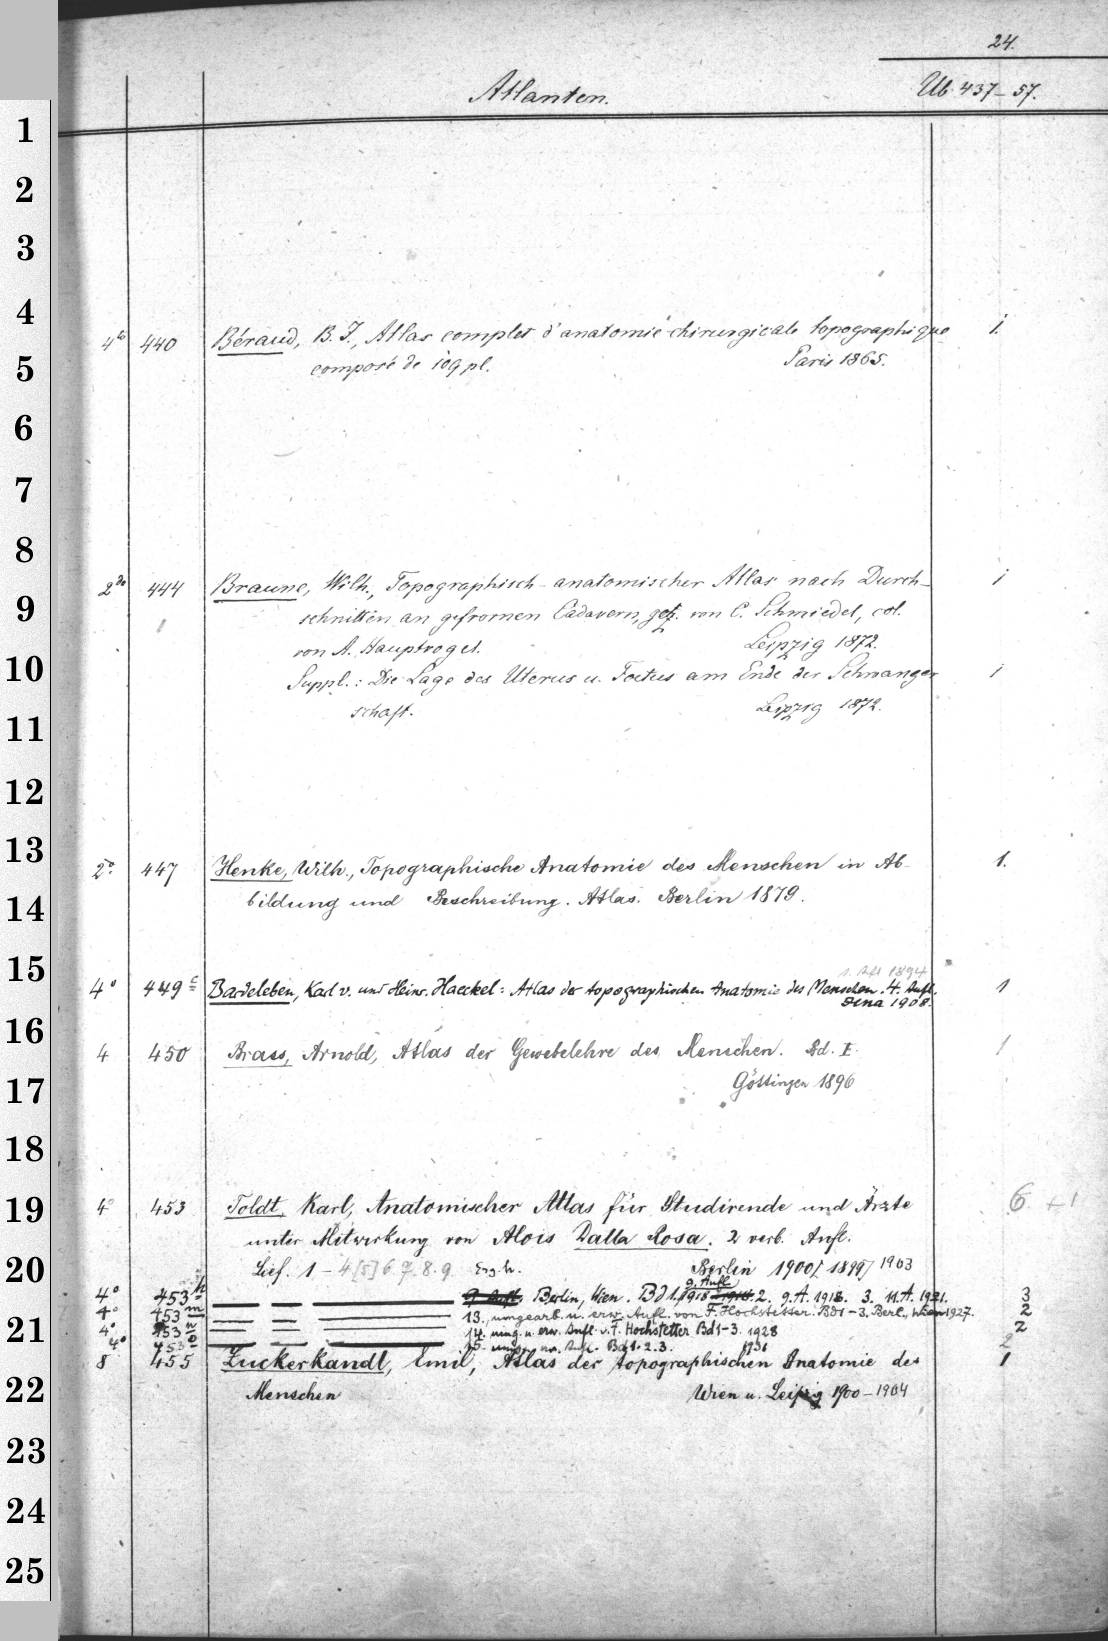 24.
Atlanten.
Ub 437–57.
4to 440 Béraud, B. J., Atlas complet d'anatomie chirurgicale topographique 1.
composé de 109 pl. Paris 1865.
2do 444 Braune, Wilh., Topographisch-anatomischer Atlas nach Durch- 1
schnitten an gefrornen Cadavern, gez. von C. Schmiedel, col.
von A. Hauptvogel. Leipzig 1872.
Suppl.: Die Lage des Uterus u. Foetus am Ende der Schwanger 1
schaft. Leipzig 1872.
2o 447 Henke, Wilh., Topographische Anatomie des Menschen in Ab- 1.
bildung und Beschreibung. Atlas. Berlin 1879.
1. Afl 1894
4o 449c Bardeleben, Karl v. und Heinr. Haeckel: Atlas der topographischen Anatomie des Menschen. 4. Aufl. 1
Jena 1908.
4 450 Brass, Arnold, Atlas der Gewebelehre des Menschen. Bd. I. 1
Göttingen 1896
4o 453 Toldt, Karl, Anatomischer Atlas für Studirende und Ärzte 6 +1
unter Mitwirkung von Alois Dalla Rosa. 2 verb. Aufl.
Lief. 1 – 4[5] 6. 7. 8. 9 Erg. h. Berlin 1900/ 1899/ 1903
9. Aufl
4o 453h — — — Berlin, Wien. Bd 1. 2. 9. A. 1918. 3. 11. A. 1921. 3
4o 453m — — — 13., umgearb. u. erw. Aufl. von F. Hochstetter. Bd 1–3. Berl., Wien 1927. 2
4o 453n — — — 14. umg. u. erw. Aufl. v. F. Hochstetter Bd 1–3. 1928 2
4o 453o — — — 15. Aufl. Bd 1. 2. 3. 2
8 455 Zuckerkandl, Emil, Atlas der topographischen Anatomie des 1
Menschen Wien u. Leipzig 1900–1904
1
2
3
4
5
6
7
8
9
10
11
12
13
14
15
16
17
18
19
20
21
22
23
24
25